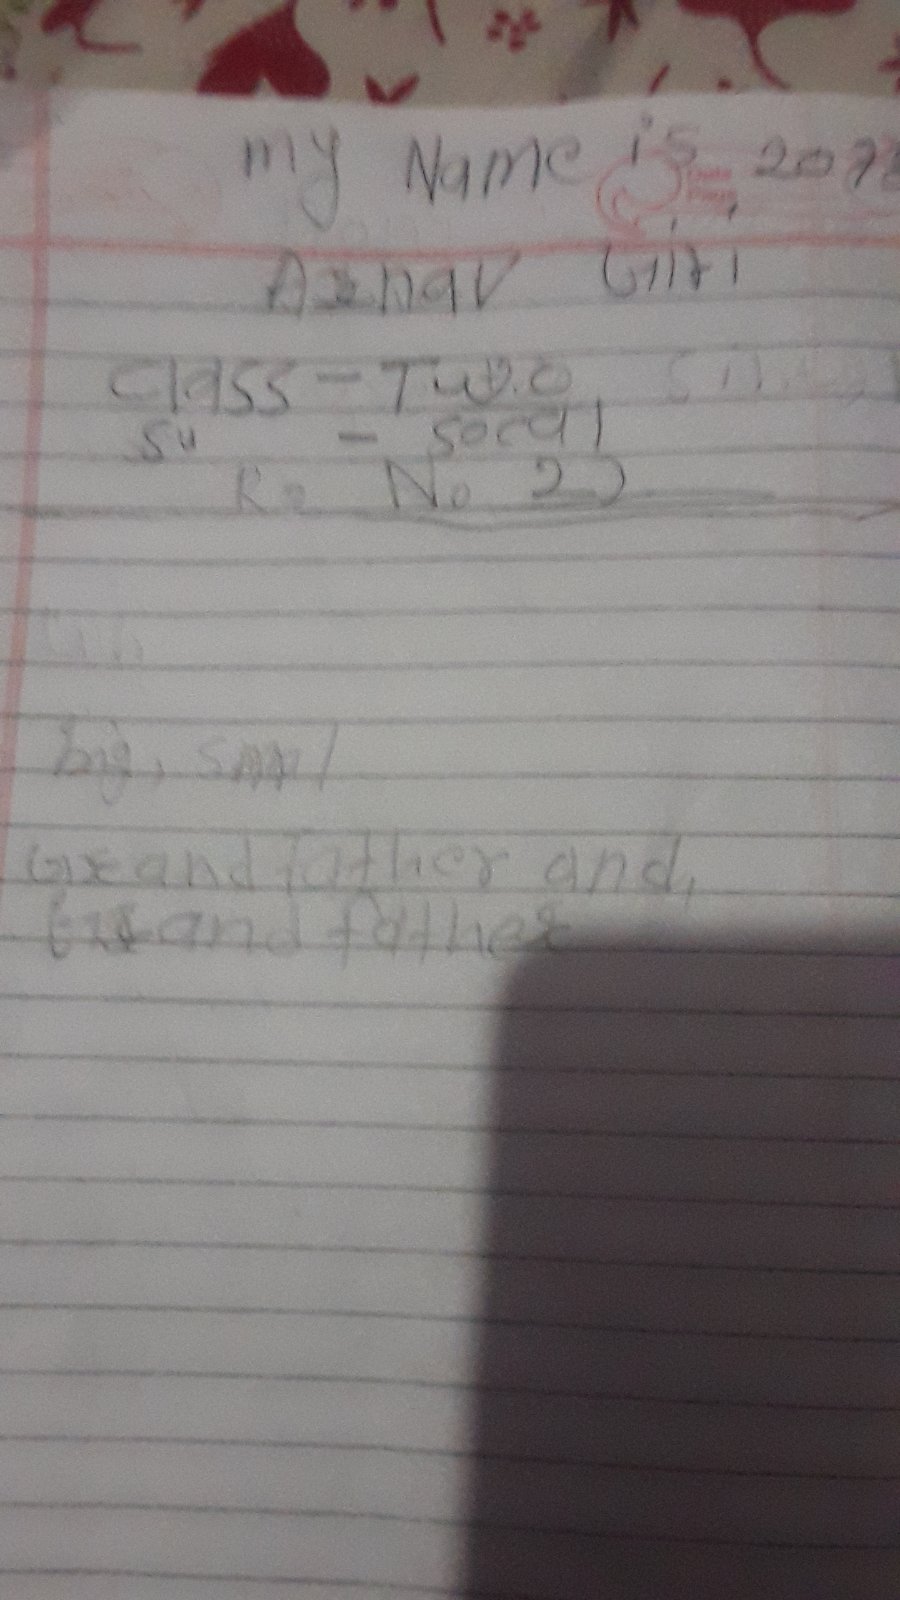 my Name is
Aznav Giri
Class - Two
Su - Socal
R. No 22
big, smml
Grandfather and,
Grandfather